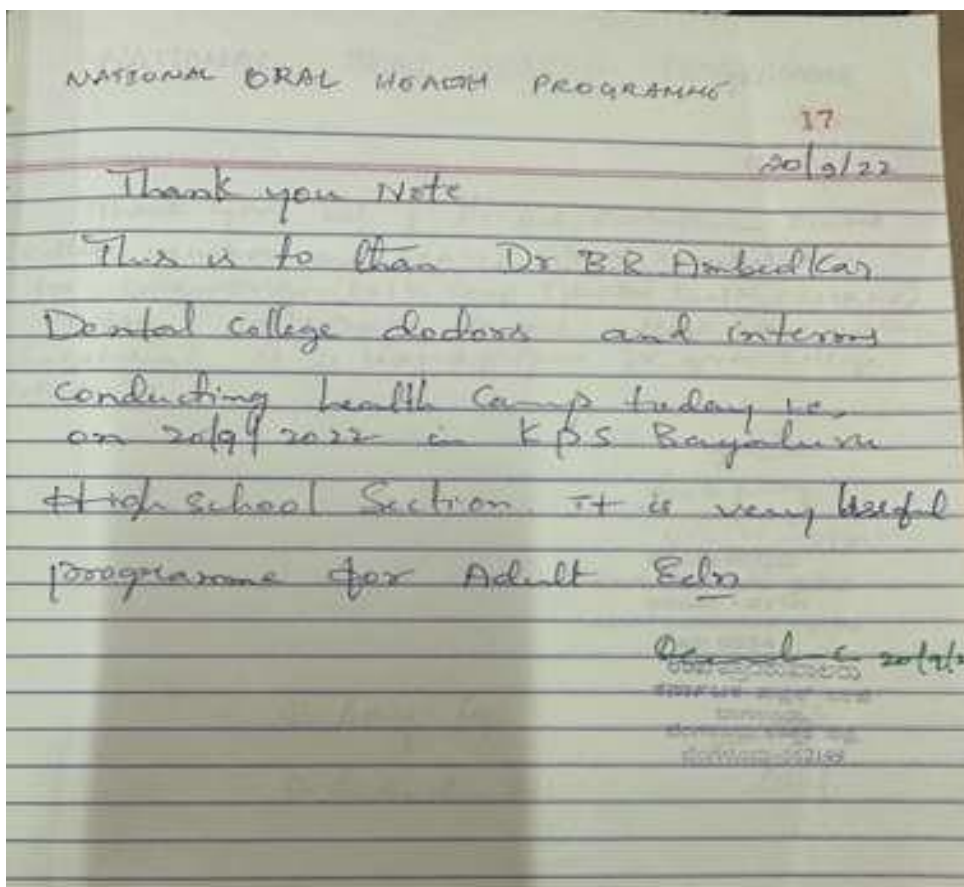 NATIONAL ORAL HEALTH PROGRAMME
17
20/9/22
Thank you Note
This is to than Dr B R Ambedkar
Dental College doctors and interns
conducting health Camp today i.e,
on 20/9/2022 in KPS Bagaluru
High school Section. it is very Useful
programme for Adult Edn
20/9/2